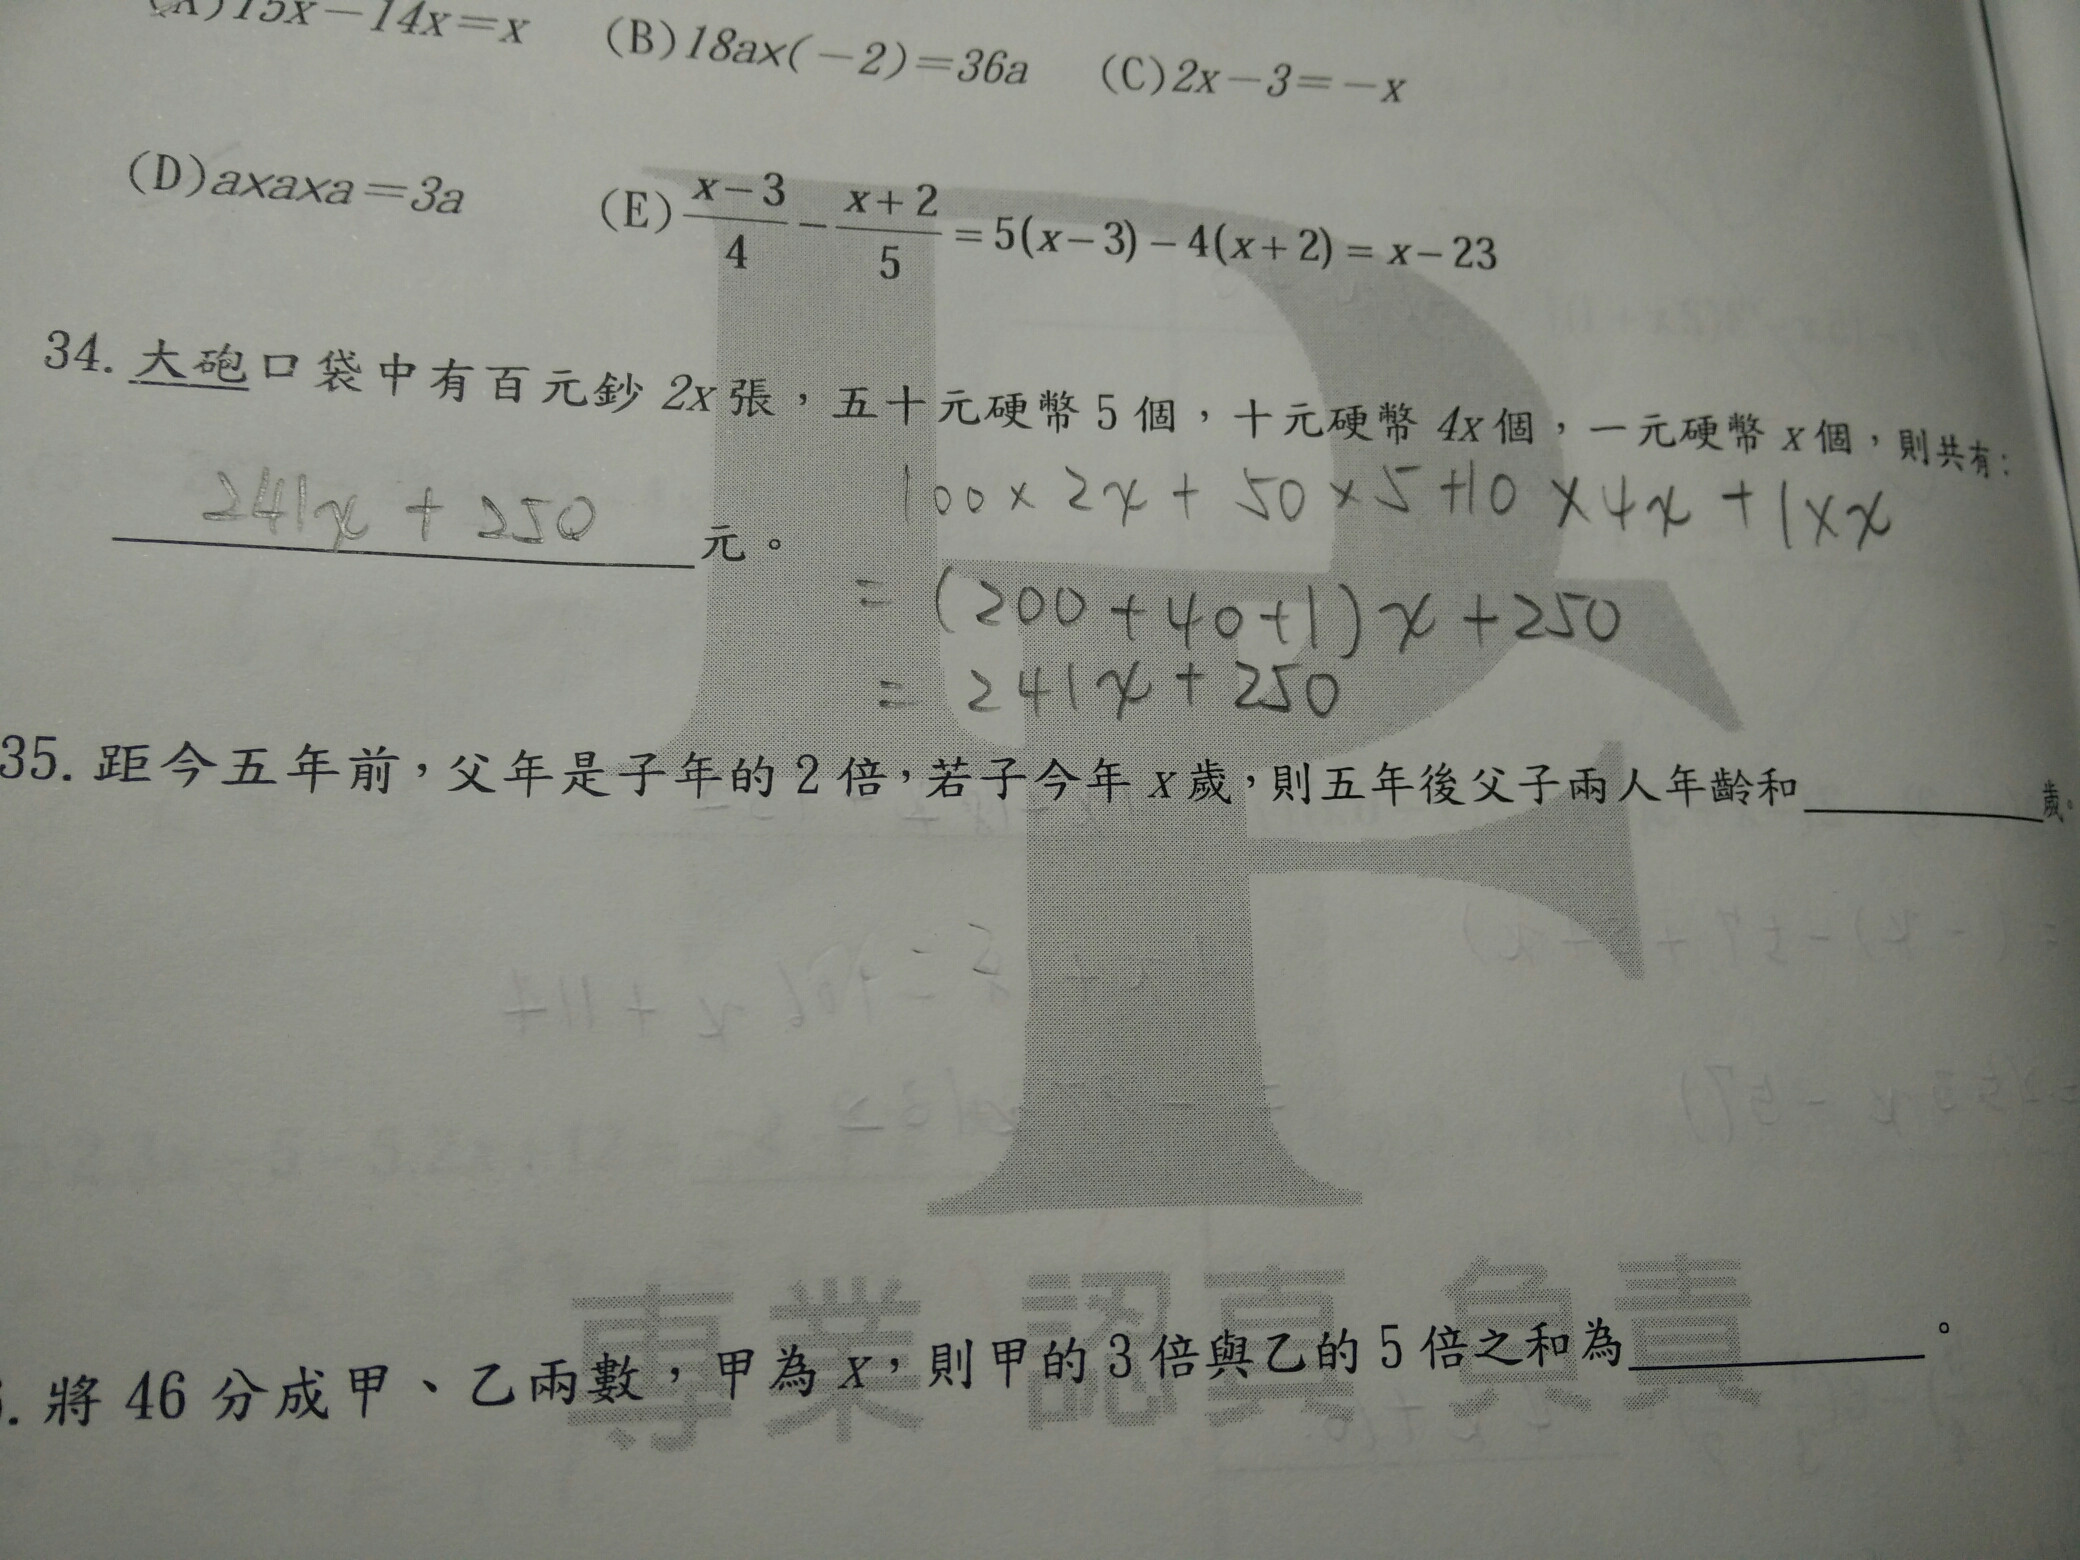 (A)15x－14x＝x (B)18a×(－2)＝36a (C)2x－3＝－x
(D)a×a×a＝3a (E)\frac{x-3}{4}-\frac{x+2}{5}=5(x-3)-4(x+2)=x-23
34. 大砲口袋中有百元鈔 2x 張，五十元硬幣 5 個，十元硬幣 4x 個，一元硬幣 x 個，則共有：
241x + 250 元。
100 × 2x + 50 × 5 + 10 × 4x + 1 × x
= (200 + 40 + 1) x + 250
= 241x + 250
35. 距今五年前，父年是子年的 2 倍，若子今年 x 歲，則五年後父子兩人年齡和 歲。
. 將 46 分成甲、乙兩數，甲為 x，則甲的 3 倍與乙的 5 倍之和為 。
專業 認真 負責